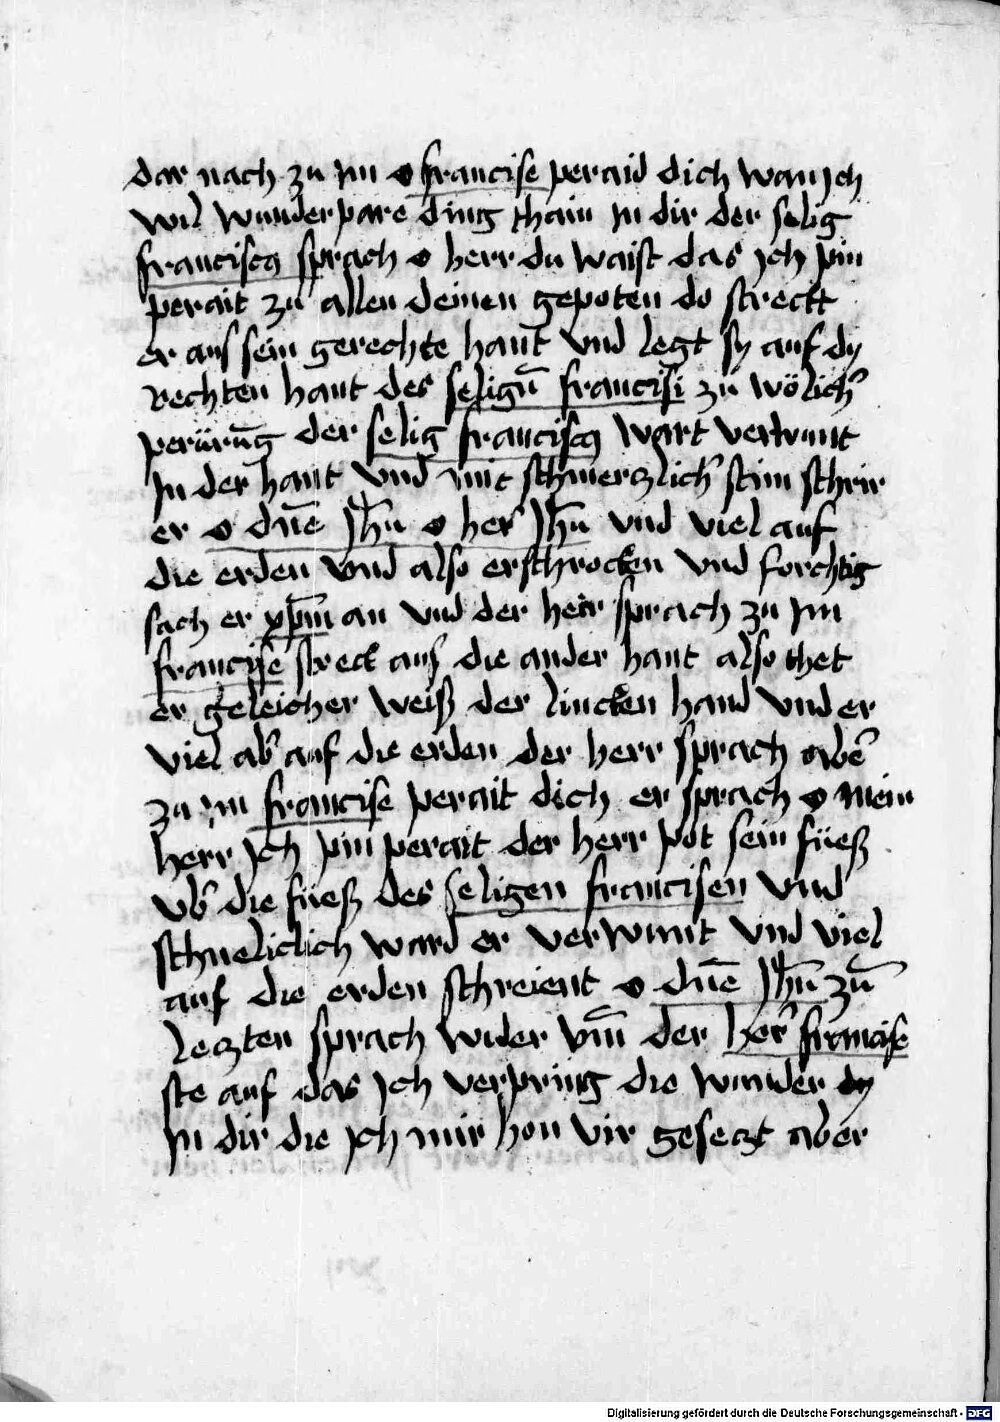 dar nach zu Im o francise peraid dich wan Jch
wil wunderpare ding thain In dir der selig
franciscꝯ sprach o herr du waist das Jch pin
perait zu allen deinen gepoten do streckt
er aus sein gerechte hant vnd legt sy auf dy
rechten hant des seligñ francisci zu wölich̃
perürũg der selig franciscꝯ wart verwunt
In der hant vnd mit schmerczlich̃ stim schrir
er o dñe Jhũ o her̃ Jhũ vnd viel auf
die erden vnd also erschrocken vnd forchtig
sach er xp̃m an vnd der herr sprach zu Im
francise streck aus die ander hant also thet
er geleicher weiß der lincken hand vnd er
viel ab̃ auf die erden der herr sprach abẽ
zu im francise perait dich er sprach o mein
herr Jch pin perait der herr pot sein füeß
vb̃ die füeß des seligen francisen vnd
schneliclich ward er verwunt vnd viel
auf die erden schreient o dñe Jhũ zũ
leczten sprach wider vm̃ der her̃ francise
ste auf das Jch verpring die wunder dy
In dir die Jch mir hon vir geseczt aber
Digitalisierung gefördert durch die Deutsche Forschungsgemeinschaft - DFG